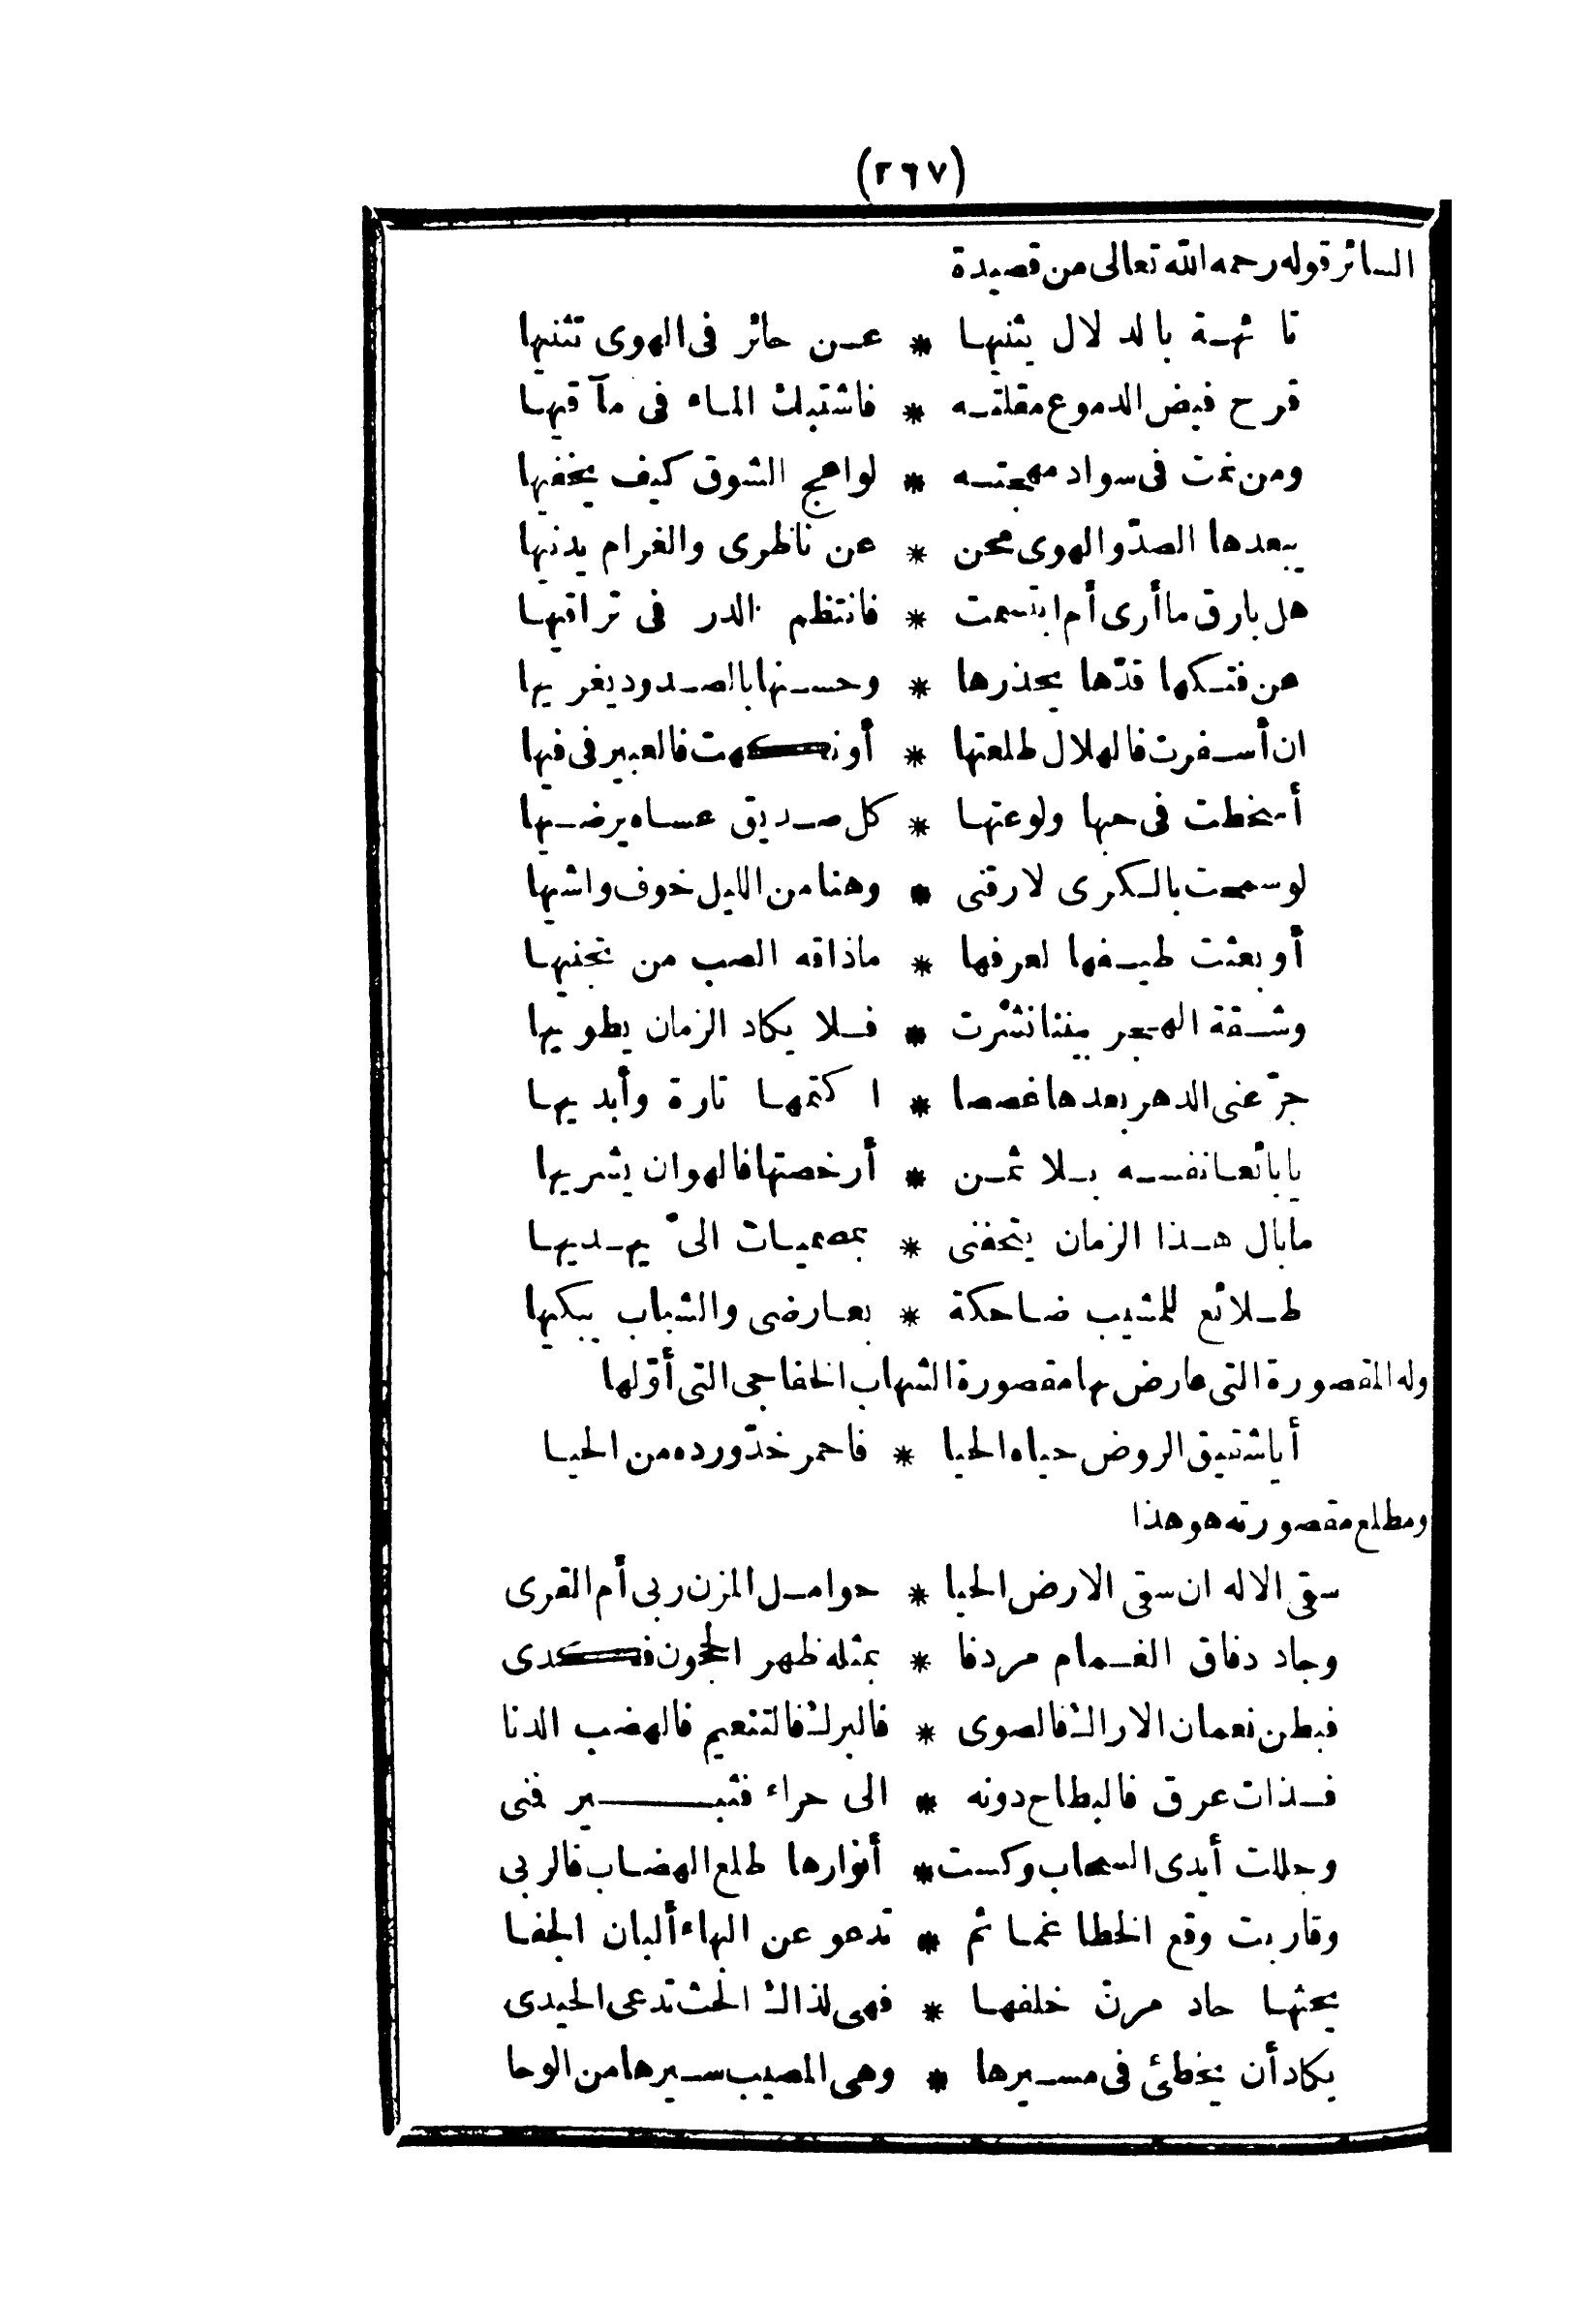 (٢٦٧)
السائر قوله رحمه الله تعالى من قصيدة
تائهة بالدلال يثنيها * عن حائر فى الهوى تثنيها
قرح فيض الدموع مقلته * فاشتبك الماء فى مآقيها
ومن نمت فى سواد مهجته * لواعج الشوق كيف يخفيها
يبعدها الصدّ والهوى محن * عن ناظرى والغرام يدنيها
هل بارق ما أرى أم ابتسمت * فانتظم الدر فى تراقيها
عن فتكها قدّها يحذرها * وحسنها بالصدود يغريها
ان أسفرت فالهلال طلعتها * أو نكهت فالعبير فى فيها
أسخطت فى حبها ولوعتها * كل صديق عساه يرضيها
لو سمحت بالكرى لارقنى * وهنا من الليل خوف واشيها
أو بعثت طيفها لعرفها * ماذاقه الصب من تجنيها
وشقة الهجر بيننا نشرت * فلا يكاد الزمان يطويها
جرّعنى الدهر بعدها غصصا * اكتمها تارة وأبديها
يا بائعا نفسه بلا ثمن * أرخصتها فالهوان يشريها
مابال هذا الزمان يتحفنى * بمصميات الىّ يهديها
طلائع للمشيب ضاحكة * بعارضى والشباب يبكيها
وله المقصورة التى عارض بها مقصورة الشهاب الخفاجى التى أوّلها
أيا شقيق الروض حياه الحيا * فاحمر خدّ ورده من الحيا
ومطلع مقصورته هو هذا
سقى الاله ان سقى الارض الحيا * حوامل المزن ربى أم القرى
وجاد دفاق الغمام مردفا * بمثله ظهر الحجون فكدى
فبطن نعمان الاراك فالصوى * فالبرك فالتنعيم فالهضب الدنا
فذات عرق فالبطاح دونه * الى حراء فثبير فمنى
وجللت أيدى السحاب وكست * أنوارها طلع الهضاب فالربى
وقاربت وقع الخطا غمائم * تدعو عن البهاء ألبان الجفا
يحثها حاد مرنّ خلفها * فهى لذاك الحث تدعى الحيدى
يكاد أن يخطئ فى مسيرها * وهى المصيب سيرها من الوحا